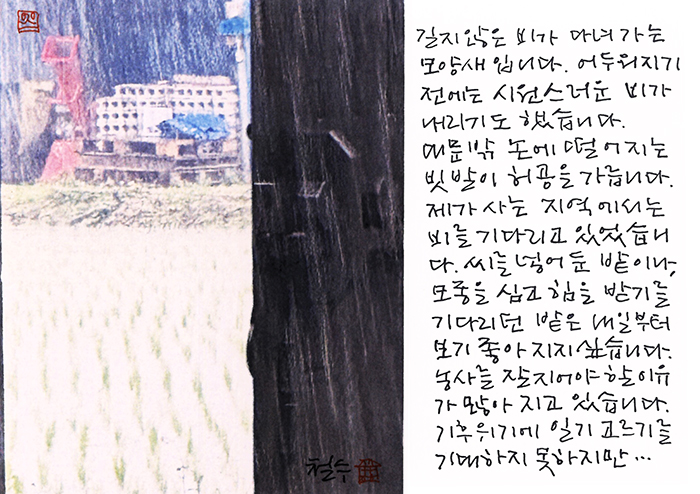 길지않은 비가 다녀 가는
모양새 입니다. 어두워지기
전에는 시원스러운 비가
내리기도 했습니다.
대문밖 논에 떨어지는
빗발이 허공을 가릅니다.
제가 사는 지역에서는
비를 기다리고 있었습니
다. 씨를 넣어둔 밭이나,
모종을 심고 힘을 받기를
기다리던 밭은 내일부터
보기 좋아지지 싶습니다.
농사를 잘지어야 할 이유
가 많아 지고 있습니다.
기후위기에 일기 고르기를
기대하지 못하지만...
철수